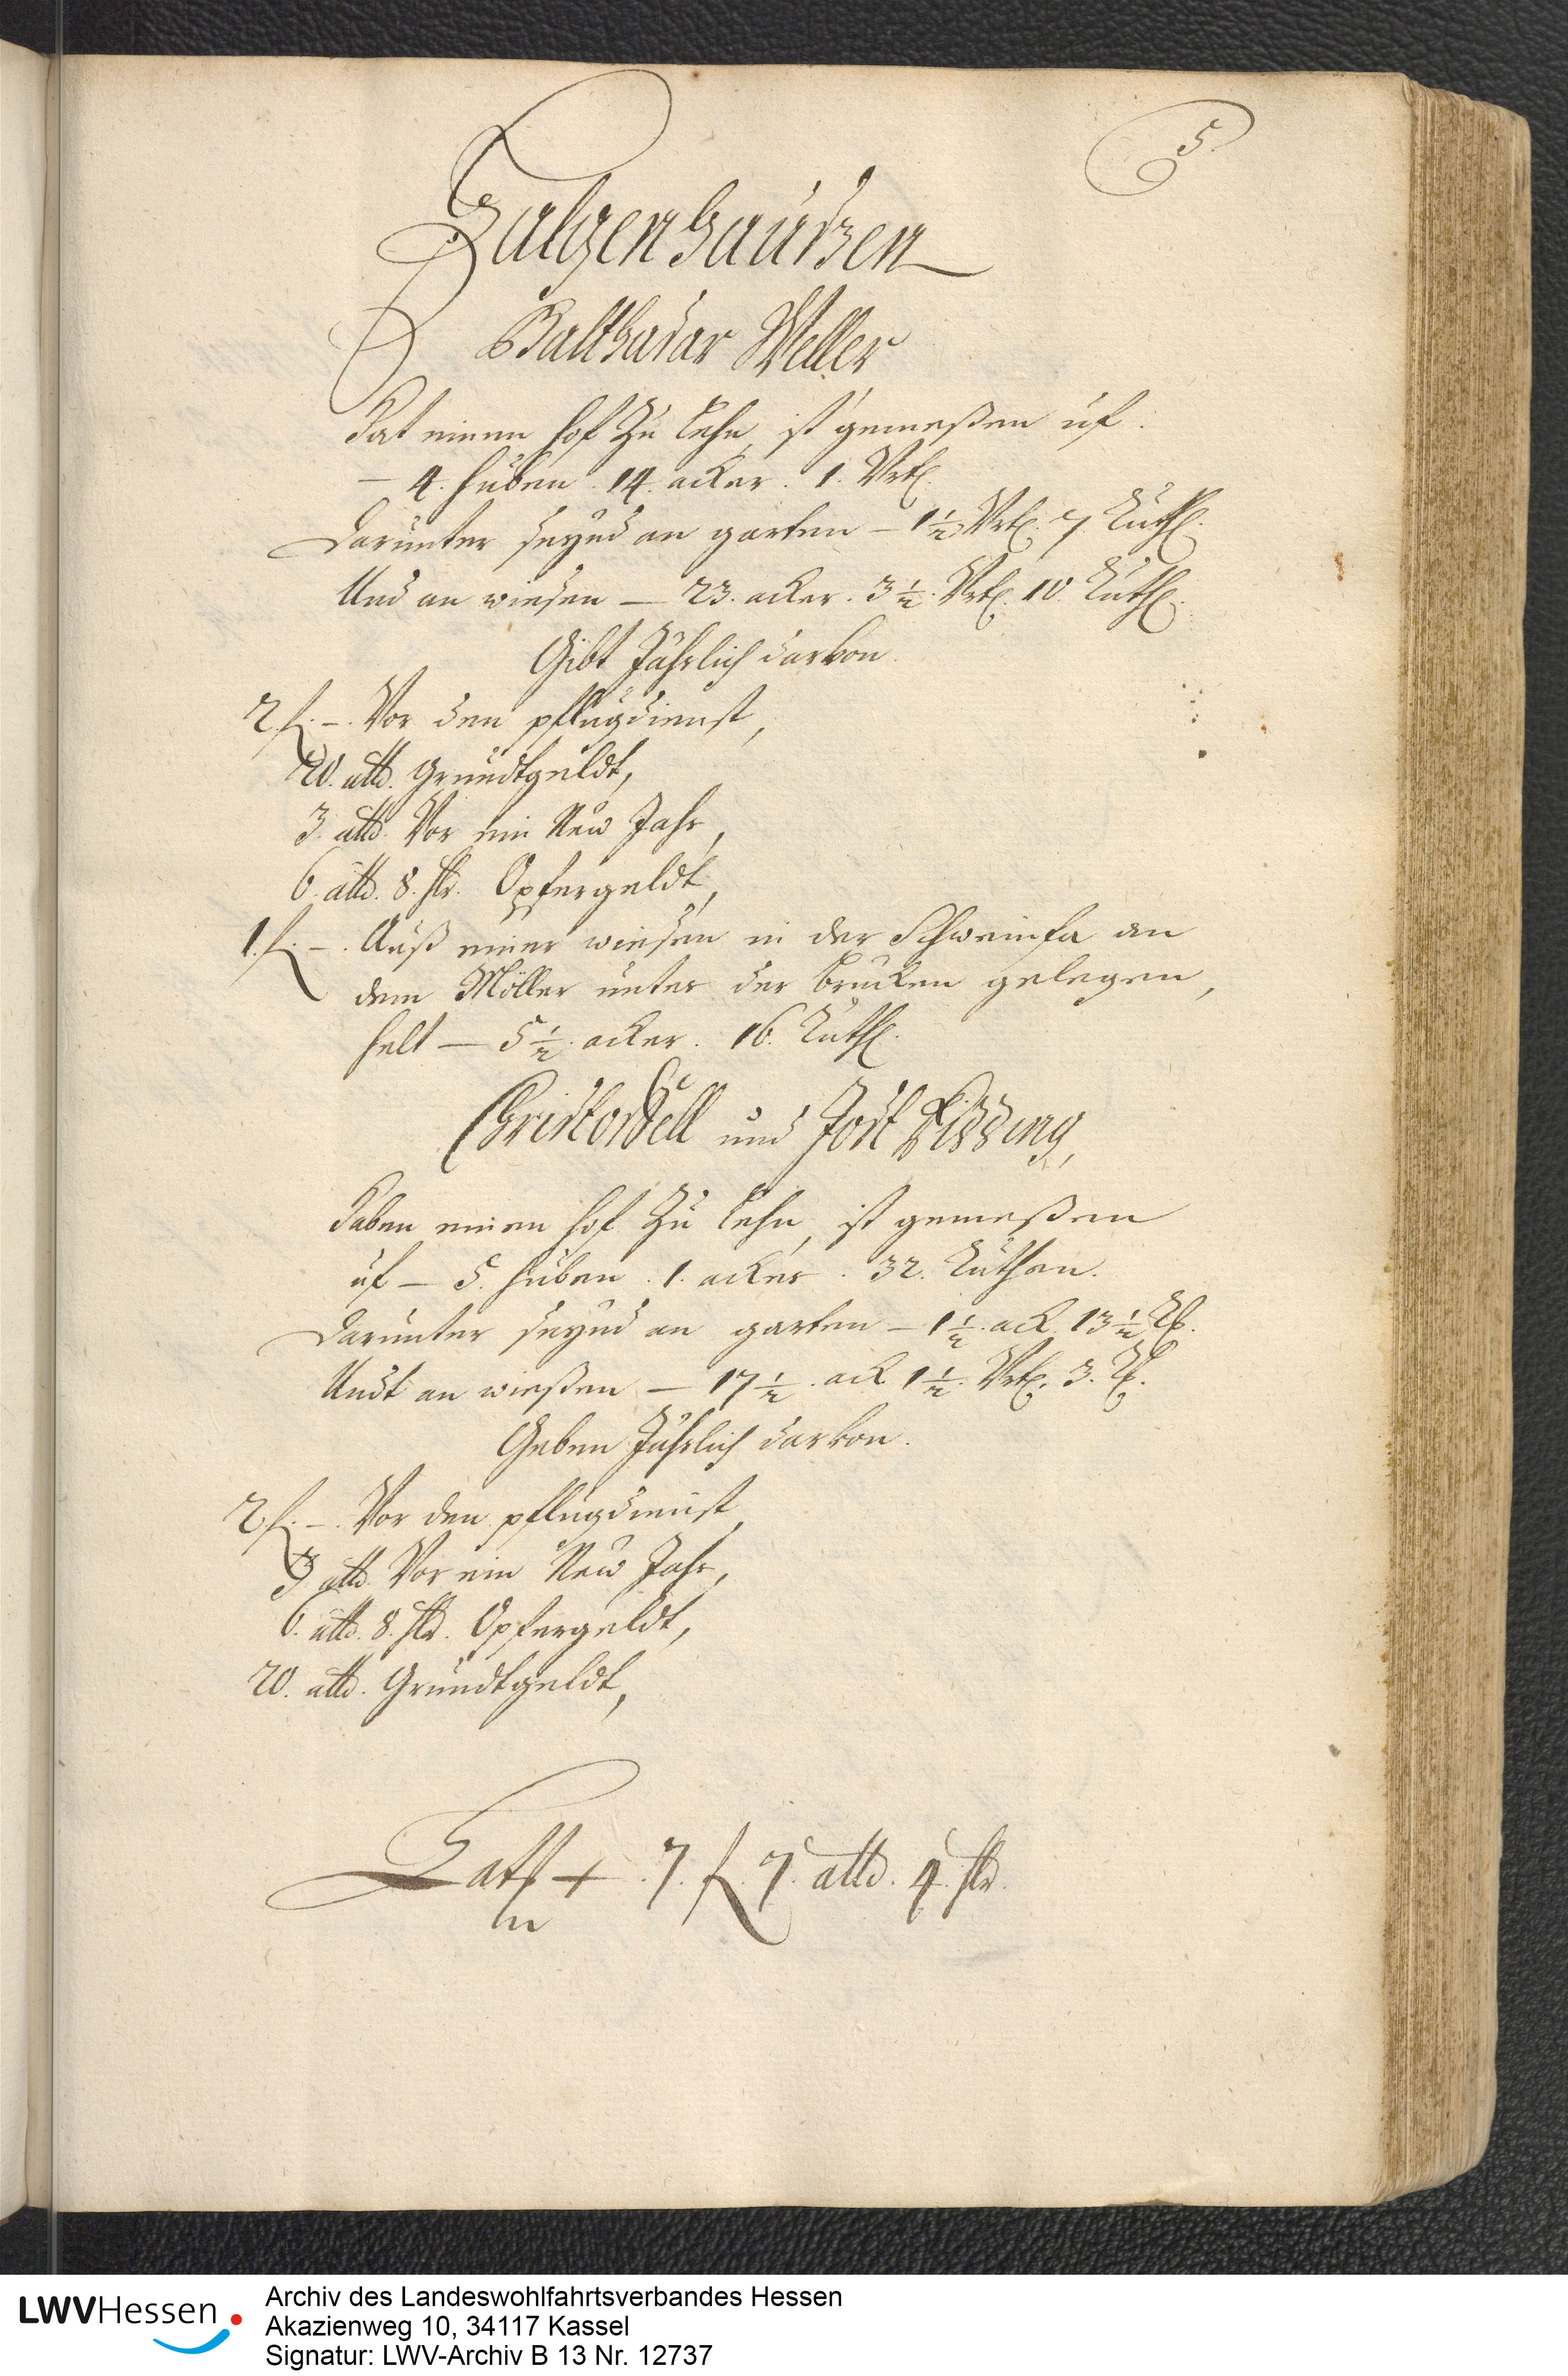 5.
Halgenhausen
Balthasar Weller
Hat einen hof zu Lehn, ist gemeßen uf.
— 4. huben. 14. acker. 1. Vrtl.
Darunter seynd an garten — 1 1/2 Vrtl. 7 Ruth.
Und an wiesen — 23. acker. 3 1/2. Vrtl. 10. Ruth.
Gibt Jährlich darvon.
2 f. —. Vor den pflugdienst,
20. alb. Grundtgeldt,
3. alb. Vor ein New Jahr,
6. alb. 8. hlr. Opfergeldt,
1. f. —. Auß einer wiesen in der Schweinfa an
dem Möller unter der brucken gelegen,
helt — 5 1/2. acker. 16. Ruth.
Christ und Jost
Haben einen hof zu Lehn, ist gemeßen
uf — 5. huben. 1. acker. 32. Ruthen.
Darunter seynd an garten — 1 1/2. ack 13 1/2 R.
Undt an wießen — 17 1/2. ack 1 1/2. Vrtl. 3. R.
Geben Jährlich darvon.
2 f. —. Vor den pflugdienst,
3 alb. Vor ein New Jahr,
6. alb. 8. hlr. Opfergeldt,
20. alb. Grundtgeldt,
7. f. 7. alb. 4. hlr.
LWVHessen
Archiv des Landeswohlfahrtsverbandes Hessen
Akazienweg 10, 34117 Kassel
Signatur: LWV-Archiv B 13 Nr. 12737